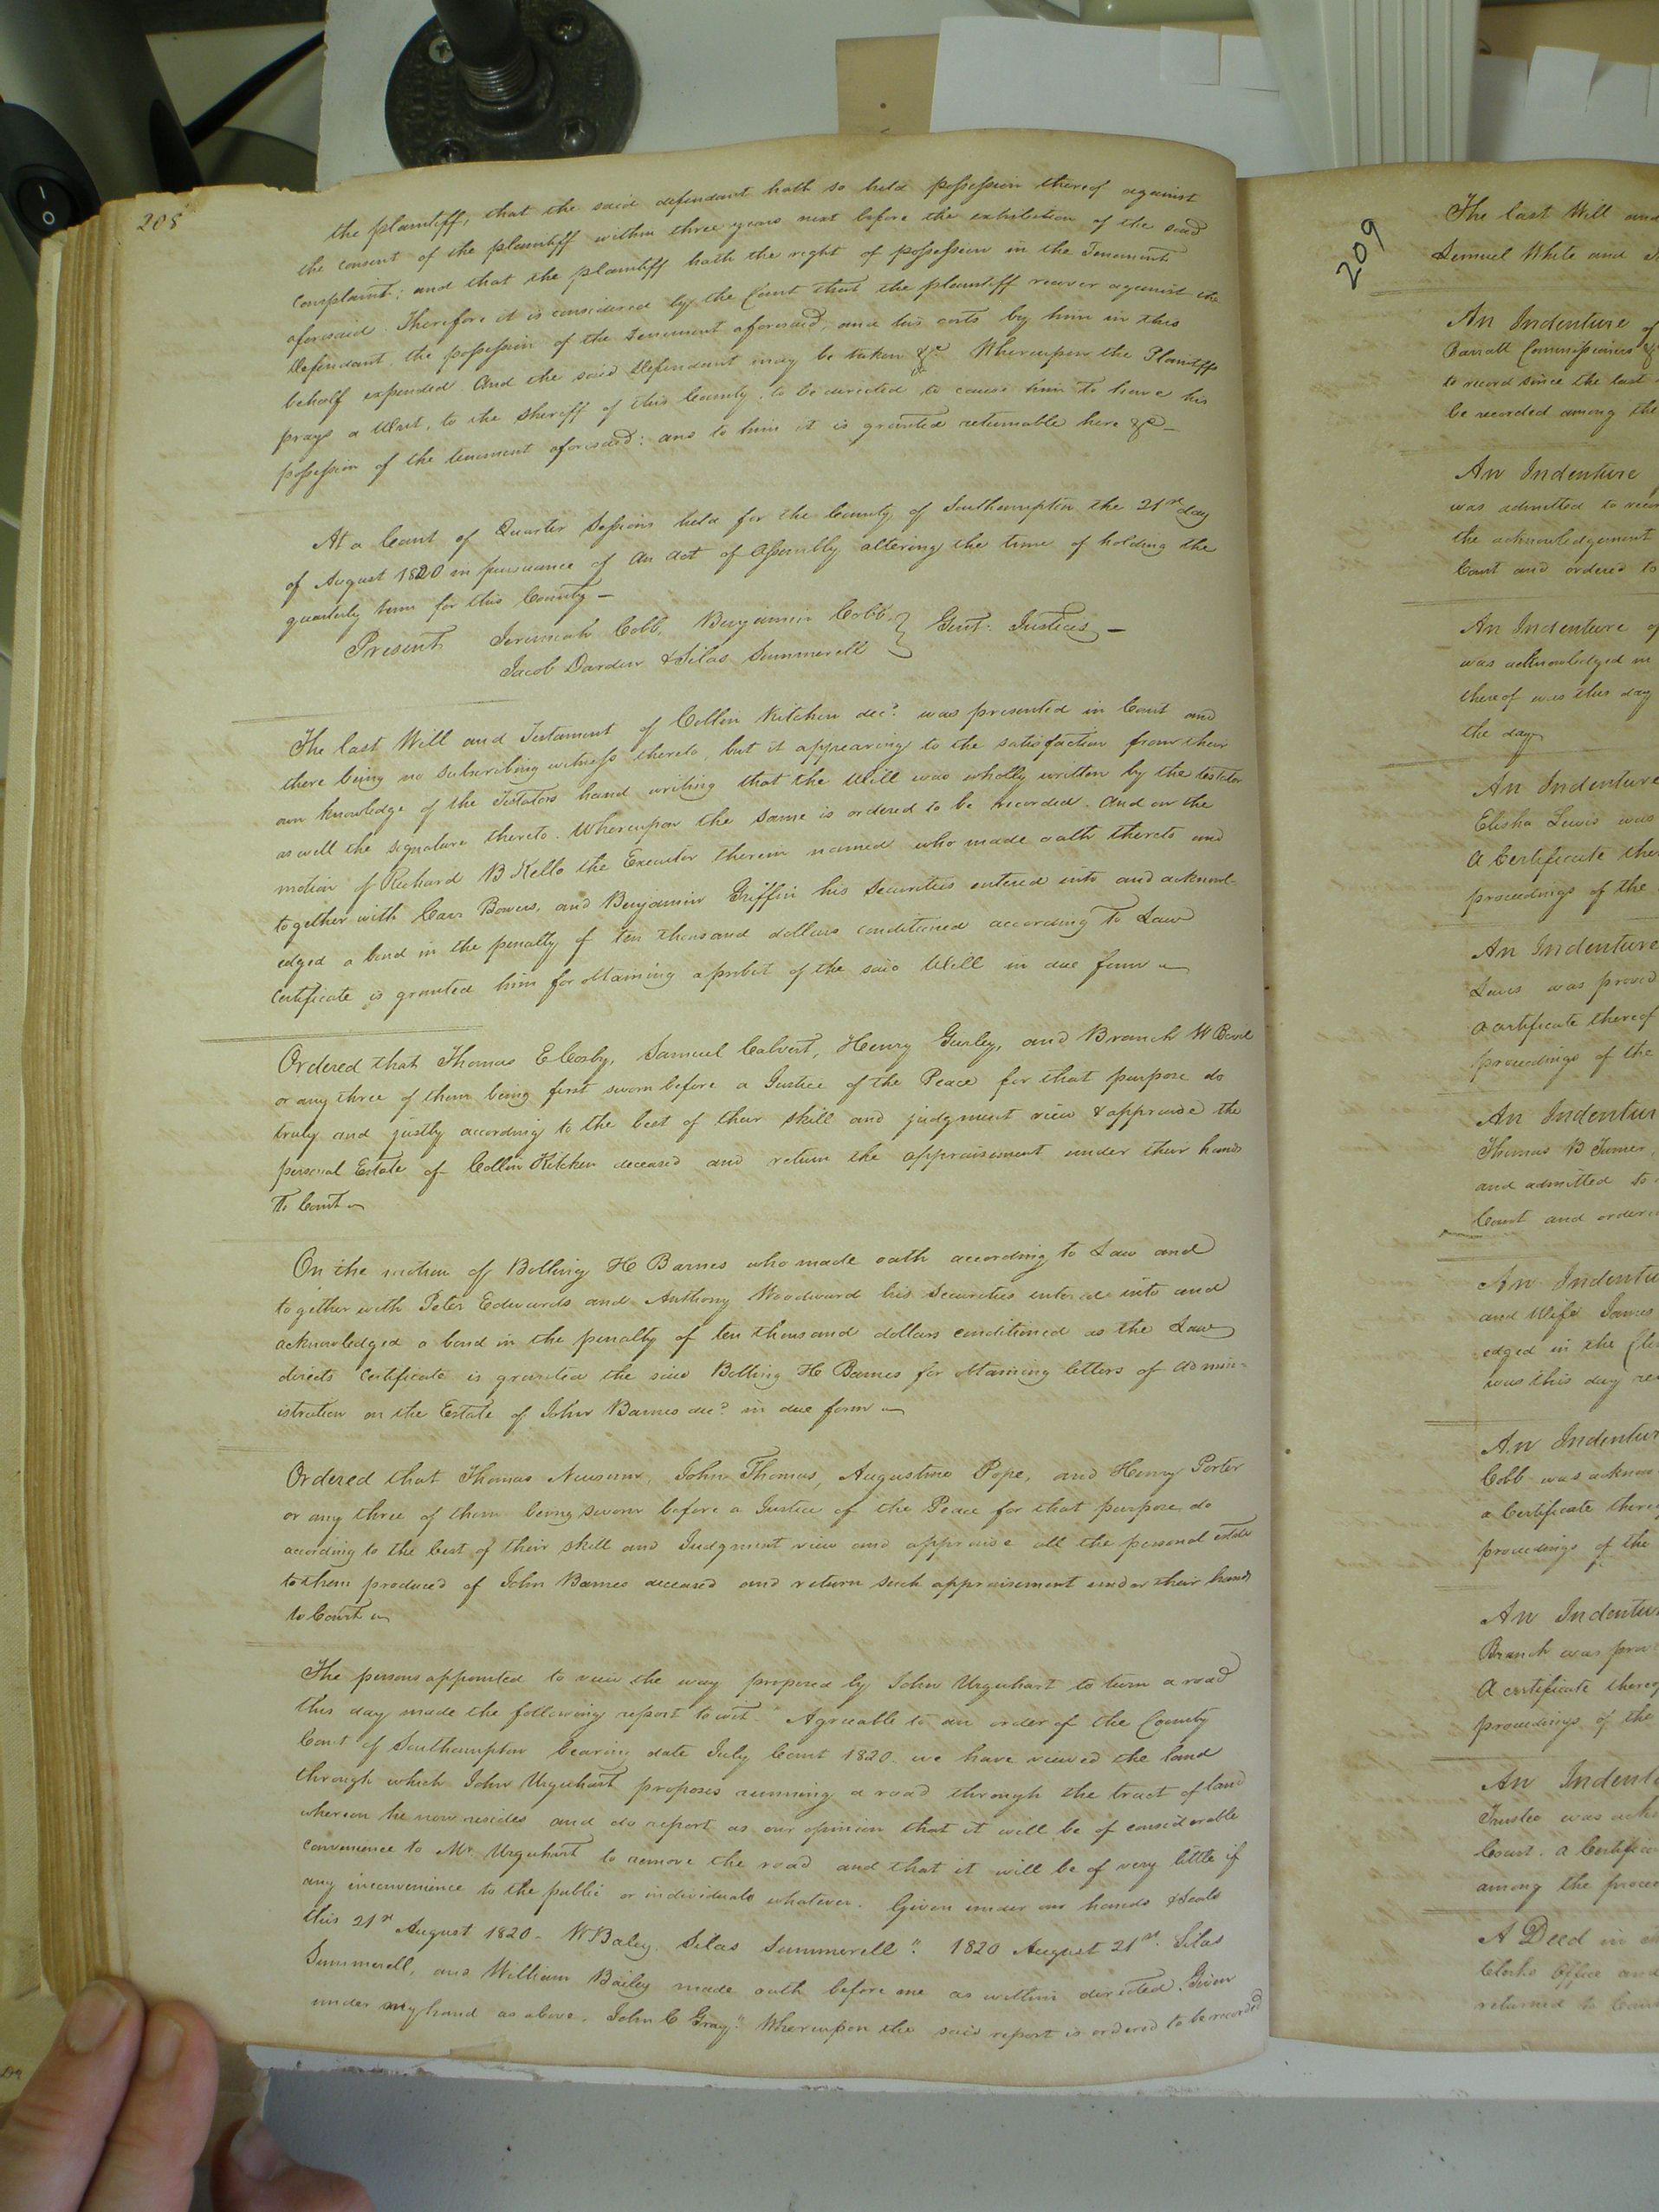 208
the plaintiff; that the said defendant hath so held possession thereof against
the consent of the plaintiff within three years next before the exhibition of the said
complaint; and that the plaintiff hath the right of possession in the Tenement
aforesaid. Therefore it is considered by the Court that the plaintiff recover against the
defendant the possession of the Tenement aforesaid, and his costs by him in this
behalf expended And the said Defendant may be taken &c. Whereupon the Plaintiff
prays a Writ, to the Sheriff of this County, to be directed to cause him to have his
possession of the tenement aforesaid: and to him it is granted returnable here &c—
At a Court of Quarter Sessions held for the County of Southampton the 21st day
of August 1820 in pursuance of an act of Assembly altering the time of holding the
quarterly term for this County—
Present Jeremiah Cobb, Benjamin Cobb } Gent. Justices—
Jacob Darden & Silas Summerell
The last Will and Testament of Collin Kitchen decd. was presented in Court and
there being no subscribing witness thereto, but it appearing to the satisfaction from their
own knowledge of the Testators hand writing that the Will was wholly written by the testator
as well the signature thereto. Whereupon the same is ordered to be recorded. And on the
motion of Richard B Kello the Executor therein named who made oath thereto and
together with Carr Bowers, and Benjamin Griffin his Securities entered into and acknowl-
edged a bond in the penalty of ten thousand dollars conditioned according To Law
Certificate is granted him for obtaining a probit of the said Will in due form
Ordered that Thomas E Cosby, Samuel Calvert, Henry Gurley, and Branch W
or any three of them being first sworn before a Justice of the Peace for that purpose do
truly and justly according to the best of their skill and judgment view & appraise the
personal Estate of Collin Kitchen deceased and return the appraisement under their hands
To Court
On the motion of Bolling H Barnes who made oath according to Law and
together with Peter Edwards and Anthony Woodward his Securities entered into and
acknowledged a bond in the penalty of ten thousand dollars conditioned as the Law
directs Certificate is granted the said Bolling H Barnes for obtaining letters of admin-
istration on the Estate of John Barnes decd. in due form
Ordered that Thomas Newsum, John Thomas, Augustine Pope, and Henry Porter
or any three of them being sworn before a Justice of the Peace for that purpose do
according to the best of their skill and Judgment view and appraise all the personal estate
to them produced of John Barnes deceased and return such appraisement under their hands
to Court
The persons appointed to view the way proposed by John Urquhart to turn a road
this day made the following report to wit. "Agreeable to an order of the County
Court of Southampton bearing date July Court 1820 we have viewed the land
through which John Urquhart proposes running a road through the tract of land
whereon he now resides and do report as our opinion that it will be of considerable
convenience to Mr. Urquhart to remove the road and that it will be of very little if
any inconvenience to the public or individuals whatever. Given under our hands & seals
this 21st August 1820— W Baley. Silas Summerell" 1820 August 21st. Silas
Summerell, and William Bailey made oath before me as within directed. Given
under my hand as above. John C Gray" Whereupon the said report is ordered to be recorded
209
The last Will and
Lemuel White and
An Indenture of
Barratt Commissioners &
to record since the last
be recorded among the
An Indenture
was admitted to
the acknowledgement
Court and ordered to
An Indenture of
was acknowledged in
thereof was this day
the day
An Indenture
Elisha Lewis was
a Certificate
proceedings of the
An Indenture
Lewis was proved
a certificate thereof
proceedings of the
An Indentur
Thomas B Turner
and admitted to
Court and
An Indentu
and Wife James
edged in the
was this day
An Indentur
Cobb was
a Certificate
proceedings of the
An Indentu
Branch was
a certificate
proceedings of the
An Indent
Trustee was
Court. a
among the
A Deed in
Clerks Office and
returned to